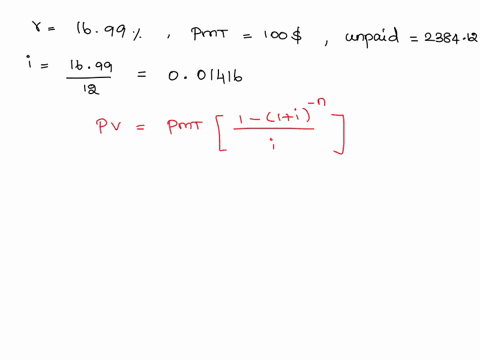 r = 16.99 % , PMT = 100 $ , unpaid = 2384.12
i = 16.99/12 = 0.01416
PV = PMT [ 1-(1+i)^-n / i ]